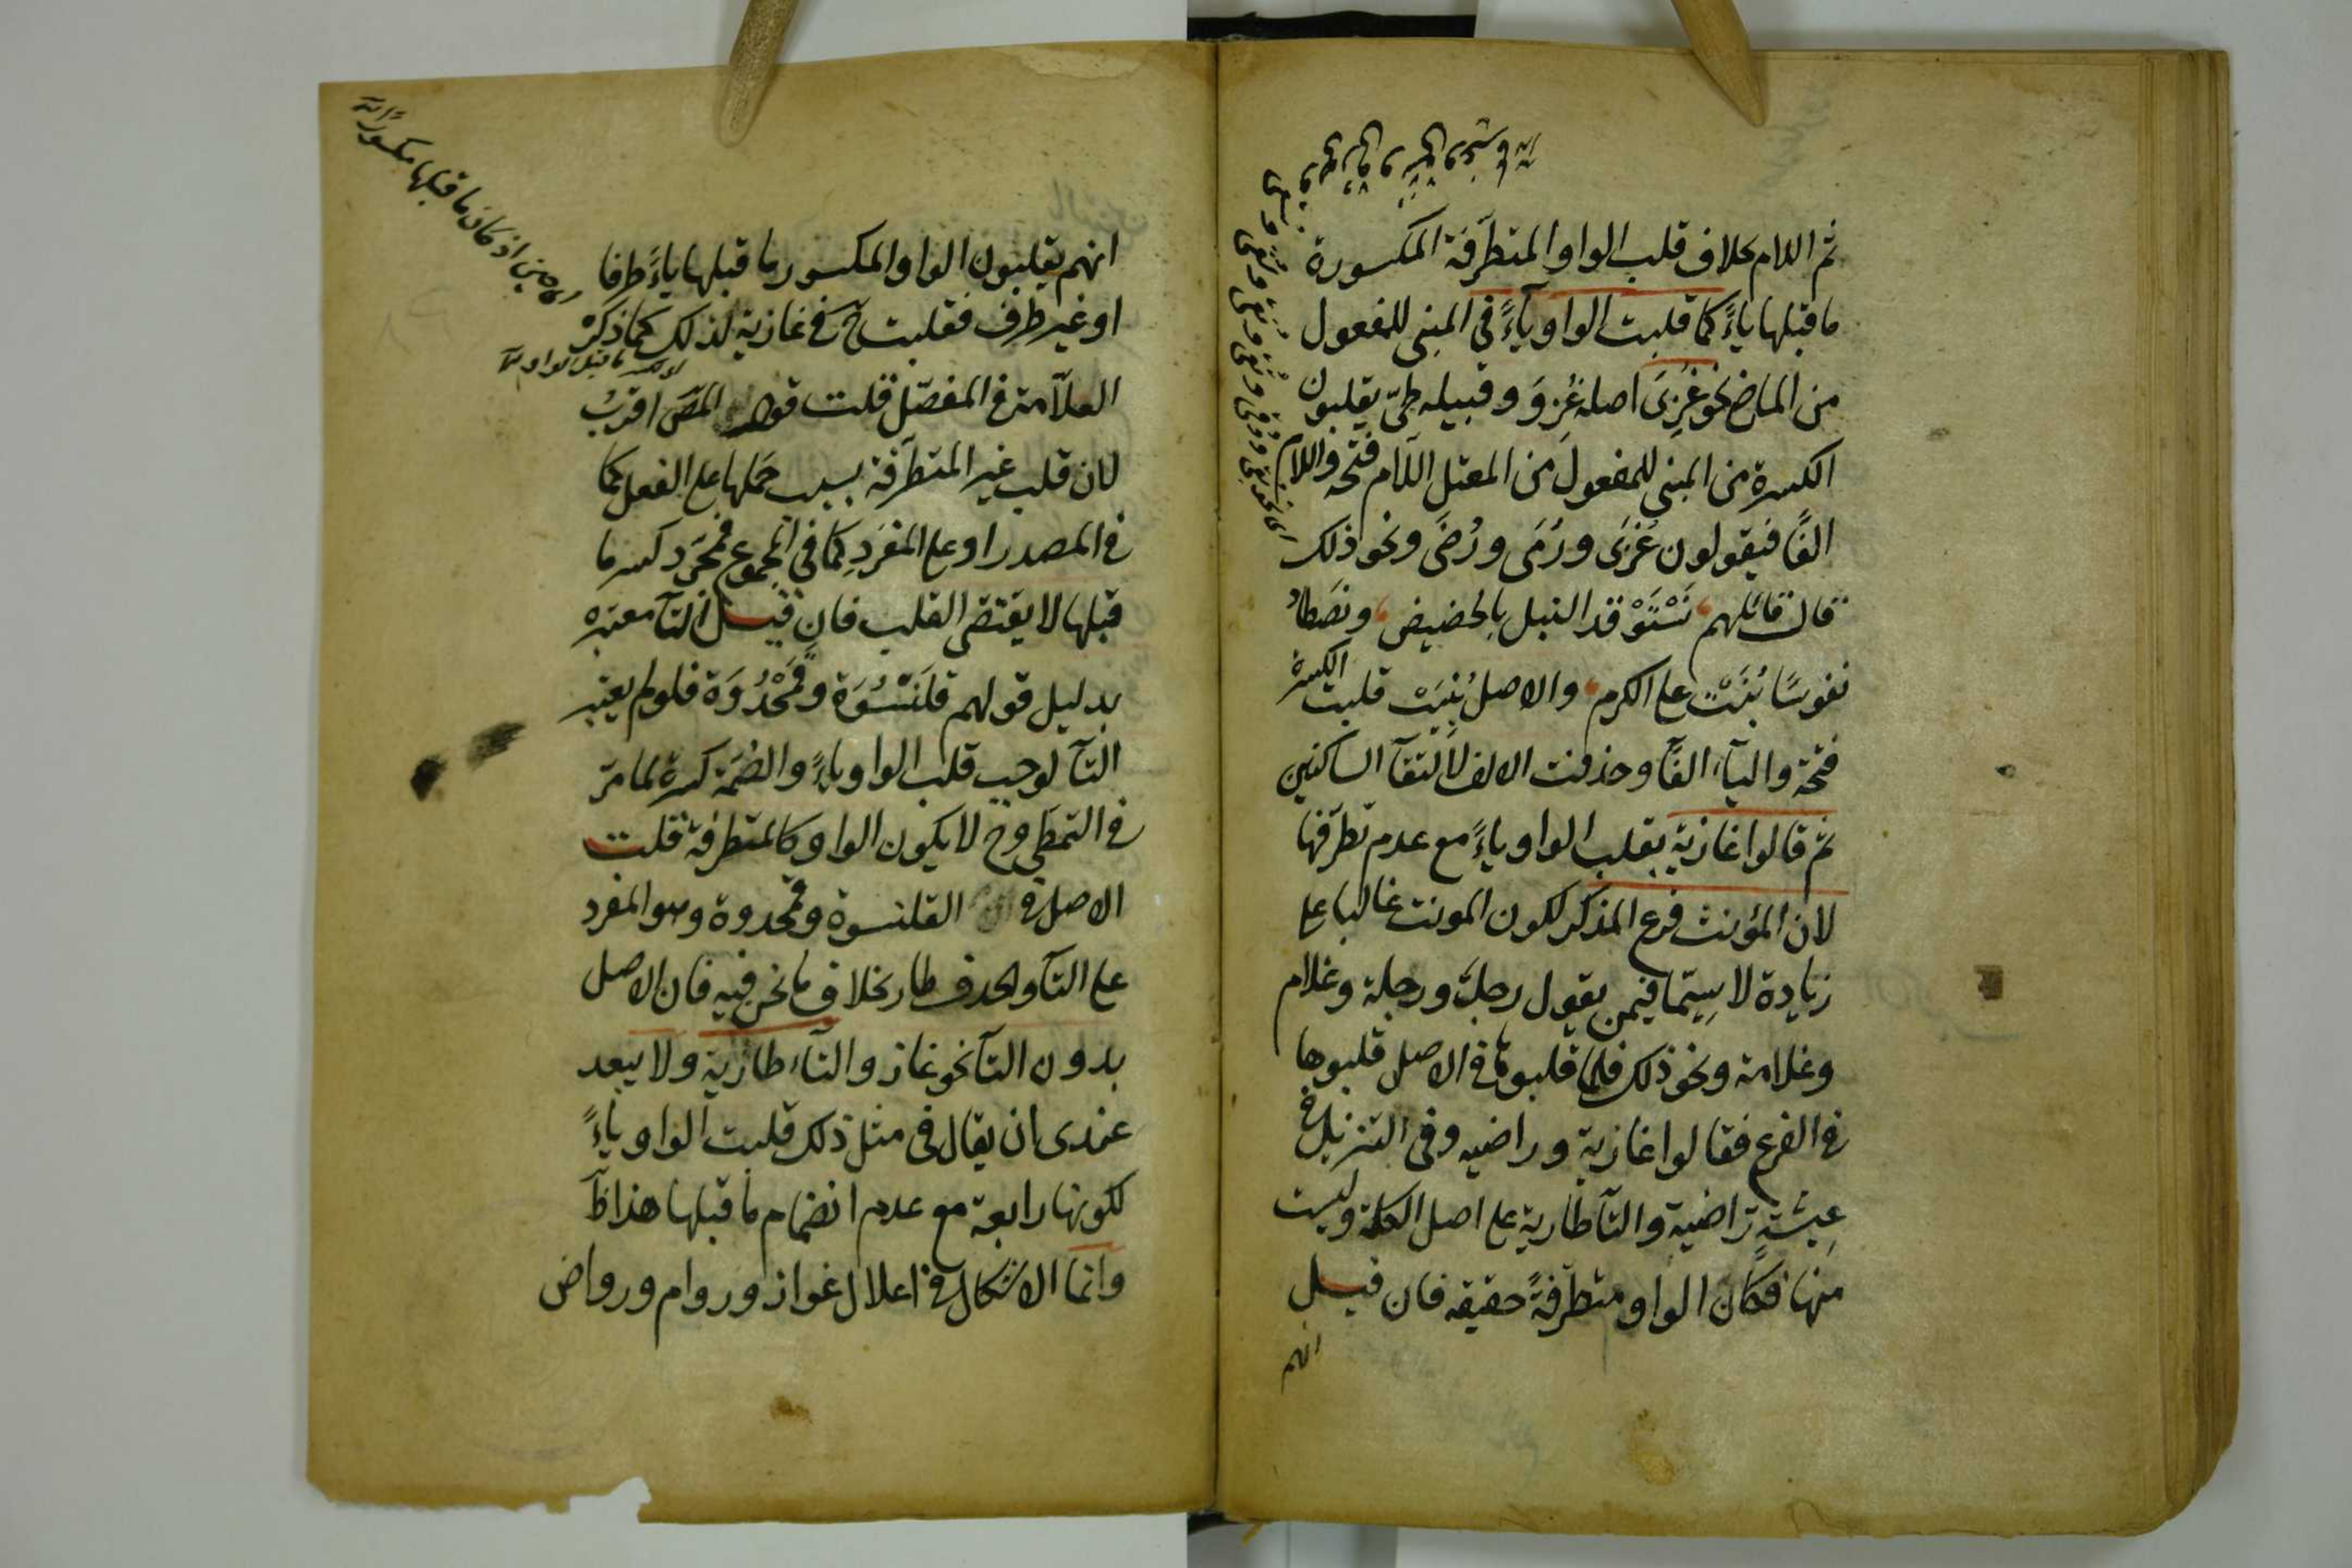 ثم اللام بخلاف قلب الواو المتطرّفة المكسورة
ما قبلها ياءً كما قلبت الواو ياءً في المبنى للمفعول
من الماضي نحو غُزِىَ اصله غُزِوَ وقبيله طىّ يقلبون
الكسرة من المبنى للمفعول من المعتل اللام فتحه واللام
الفًا فيقولون غُزَى ورُمَى ورُضَى ونحو ذلك
قال قائلهم نَسْتَوْقد النبل بالحضيض ونصطاد
نفوسًا بُنَتْ على الكرم والاصل بُنِيَتْ قلبت الكسرة
فتحة والياء الفًا وحذفت الالف لالتقآ الساكنين
ثم قالوا غازية بقلب الواو ياءً مع عدم تطرّفها
لان المؤنث فرع المذكر لكون المونث غالبا على
زيادة لا سيّما فيمن يقول رجل ورجلة وغلام
وغلامة ونحو ذلك فلما قلبوها فى الاصل قلبوها
فى الفرع فقالوا غازية وراضيه وفى التنزيل فى
عيشةٍ راضية والتآ طارية على اصل الكلمة وليست
منها فكان الواو متطرّفةً حقيقه فان قيل
انهم
انهم يقلبون الواو المكسور ما قبلها ياءً طرفا
او غير طرف فقلبت ح فى غازية لذلك كما ذكره
العلّامة فى المفصّل قلت قول المصَ اقرب
لان قلب غير المتطرّفة بسبب حملها على الفعل كما
فى المصدر او على المفرَدِ كما في الجموع فمجرّد كسر ما
قبلها لا يقتضى القلب فان قيل التآ معتبره
بدليل قولهم قلَنْسُوَة وقَمَحْدُوَة فلو لم يعتبر
التآ لوجب قلب الواو ياءً والضمّة كسرة لما مرّ
فى التمطى وح لا يكون الواو كالمتطرفة قلت
الاصل فى القلنسوة وقمحدوة وهو المفرد
على التآ والحذف طار بخلاف ما نحن فيه فان الاصل
بدون التآ نحو غاز والتآء طارية ولا يبعد
عندى ان يقال فى مثل ذلك قلبت الواو ياءً
لكونها رابعة مع عدم انضمام ما قبلها هذا
وانما الاشكال فى اعلال غواز وروام ورواض
اذ كان ما قبلها مكسورا